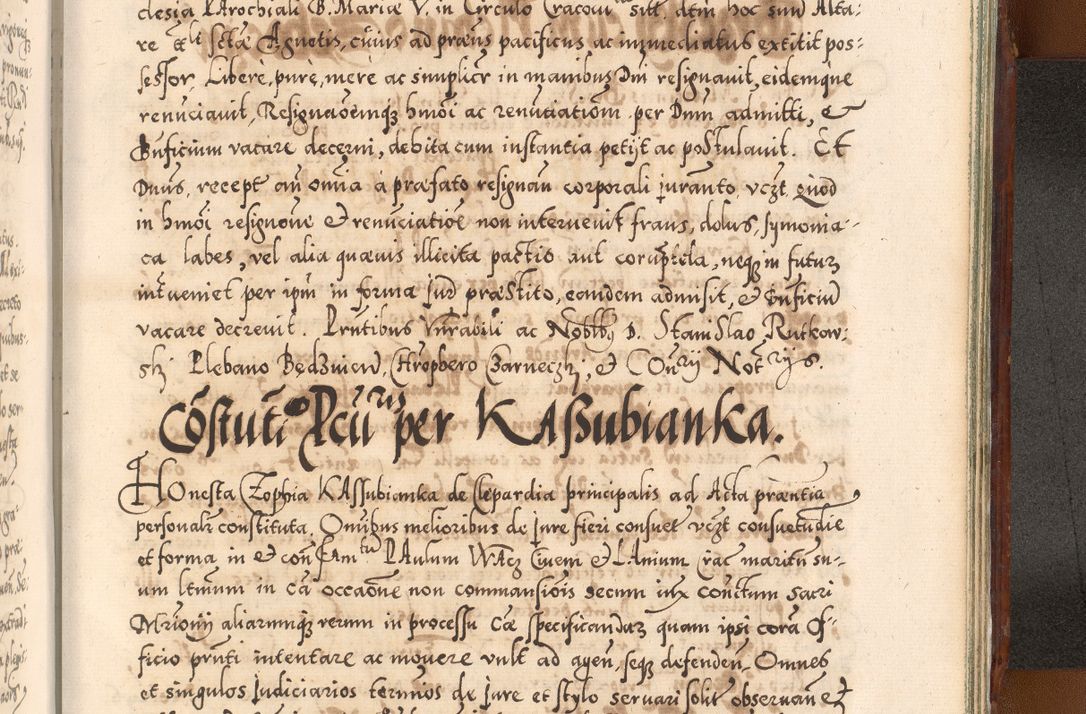 clesia PArochiali B. Mariæ V. in Circulo Cracoui sitt. dtm hoc suū Alta-
re Stæ Agnetis, cuius ad præns pacificus ac immediatus extitit pos-
sessor, Liberè, purè, merè ac simplicr in manibus Dni resignauit, eidemque
renuciauit, Resignaōemq; hmōi ac renūtiatiōm per Dnm admitti, et
Bnficium vacare decerni, debita cum instantia petijt ac postulauit. Et
Dnus, recept an omīa à præfato resignan corporali juranto, vczt quod
in hmōi resignōne et renuciatiōe non interuenit fraus, dolus, symonia-
ca labes, vel alia quæuis illicita pactio aut coruptela, neq; in futurz
intueniet per ipm in forma jurd præstito, eandem admisit, et Bnficiū
vacare decreuit. Prntibus Vnrabili ac Nobilbus D. Stanislao Rutkow-
ski Plebano Będzinien, Christophero Czarneczki, et COnrij Notrijs.
Cōstuti Pcūris per KAssubianka.
HOnesta Zophia KAssubianka de Clepardia principalis ad Acta præntia
personalr constituta, Omibus melioribus de jure fieri consuet vczt consuetudie
et forma in et con Famtū PAulum WAcz Ciuem et LAnium Crac maritū su-
um ltmum in Cā occaōne non commansiōis secum iux conctum sacri
Mrionij aliarumq; rerum in processu Cæ specificandarz quam ipsi corā Of-
ficio prnti intentare ac mouere vult ad agen, seq; defenden, Omnes
et singulos Judiciarios termios de jure et stylo seruari solit obseruan et